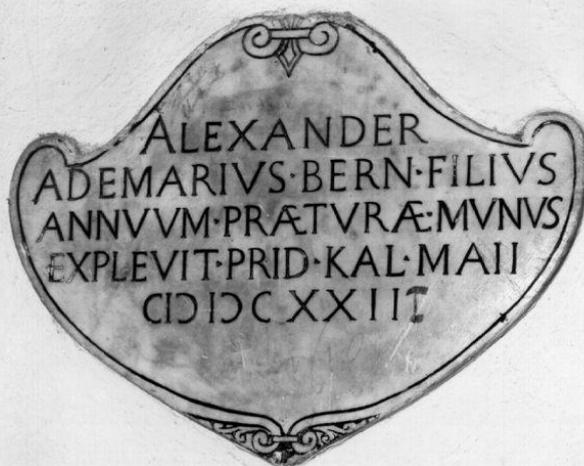 ALEXANDER
ADEMARIVS·BERN·FILIVS
ANNVVM·PRÆTVRÆ·MVNVS
EXPLEVIT·PRID·KAL·MAII
CIↃIↃCXXIII